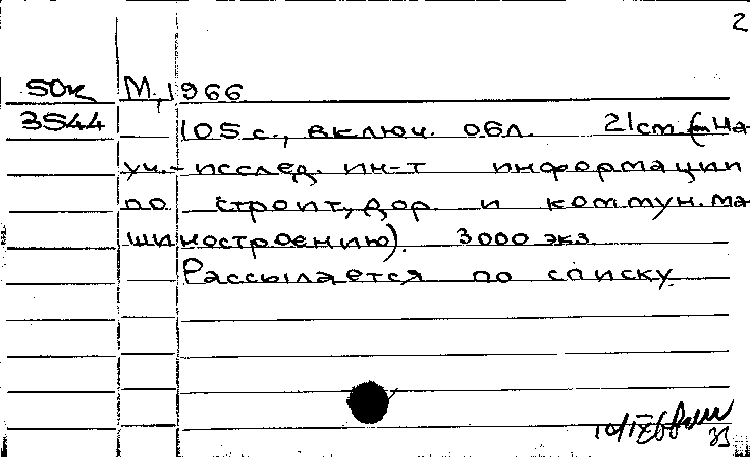 2
50к М., 1966
3544 105 с., включ. обл. 21 cm. (На
уч.-исслед. ин-т информации
по строит., дор. и коммун. ма
шиностроению). 3000 экз.
Рассылается по списку